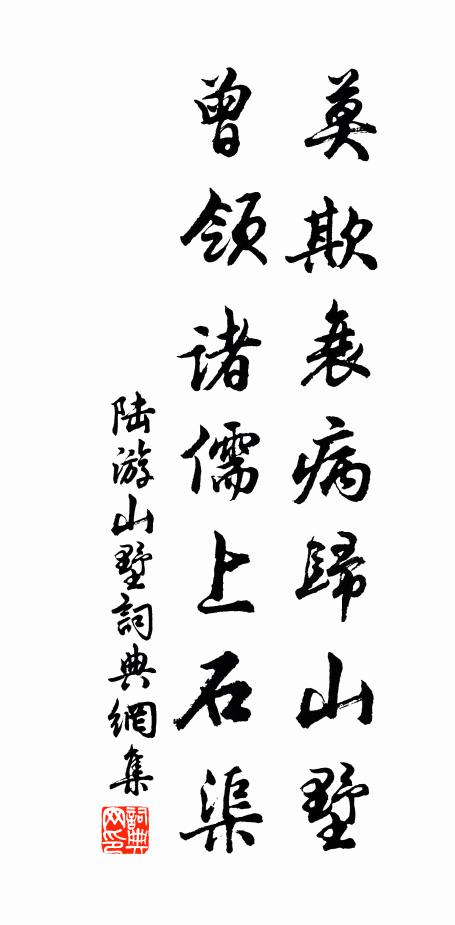 莫欺衰病歸山墅
曾領諸儒上石渠
陆游山墅詞典網集
詞典网印